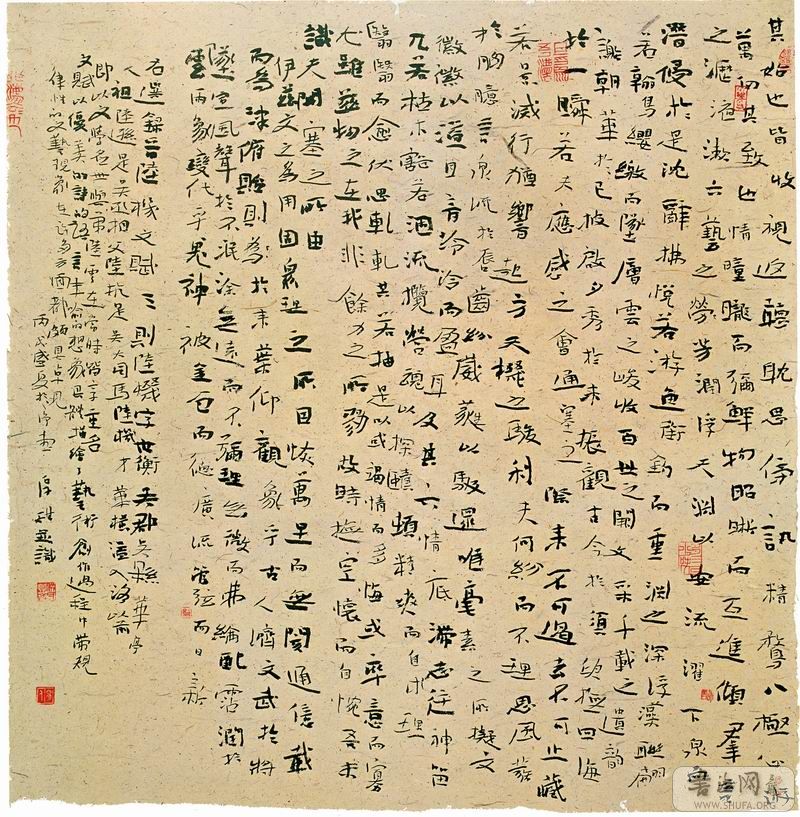 其始也皆收視返聽耽思傍訊精騖八極心游
萬仞其致也情曈曨而彌鮮物昭晰而互進傾羣言
之瀝液漱六藝之芳潤浮天淵以安流濯下泉
潛侵於是沈辭怫悅若游魚銜鈎而重淵之深浮藻聯翩
若翰鳥纓繳而墜層雲之峻收百世之闕文采千載之遺韻
謝朝華於已披啟夕秀於未振觀古今於須臾撫四海
於一瞬若夫應感之會通塞之際來不可遏去不可止藏
若景滅行猶響起方天機之駿利夫何紛而不理思風發
於胸臆言泉流於唇齒紛葳蕤以馺遝唯毫素之所擬文
徽徽以溢目音泠泠而盈耳及其六情底滯志往神留
兀若枯木豁若涸流攬營魂以探賾頓精爽而自求理
翳翳而愈伏思軋軋其若抽是以或竭情而多悔或率意而寡
尤雖茲物之在我非餘力之所勠故時撫空懷而自惋吾未
識夫開塞之所由
伊茲文之為用固眾理之所因恢萬里而無閡通億載
而為津俯貽則於來葉仰觀象乎古人濟文武於將
墜宣風聲於不泯塗無遠而不彌理無微而弗綸配霑潤於
雲雨象變化乎鬼神被金石而德廣流管弦而日新
右選錄晉陸機文賦三則陸機字士衡吳郡吳縣華亭
人祖陸遜是吳丞相父陸抗是吳大司馬陸機才華橫溢入洛以前
即以文學名世與弟陸雲在當時皆享重名
文賦以優美的詩的語言生動的想象具體描繪了藝術創作過程中帶規
律性的文藝現象方面都頗具卓見
丙戌盛夏於並識
書法网
WWW.SHUFA.ORG